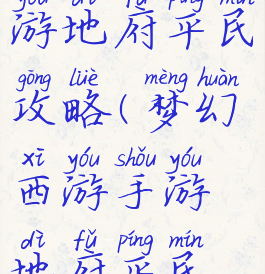 yóu dì fǔ píng mín
游地府平民
gōng lüè mèng huàn
攻略(梦幻
xī yóu shǒu yóu
西游手游
dì fǔ píng mín
地府平民